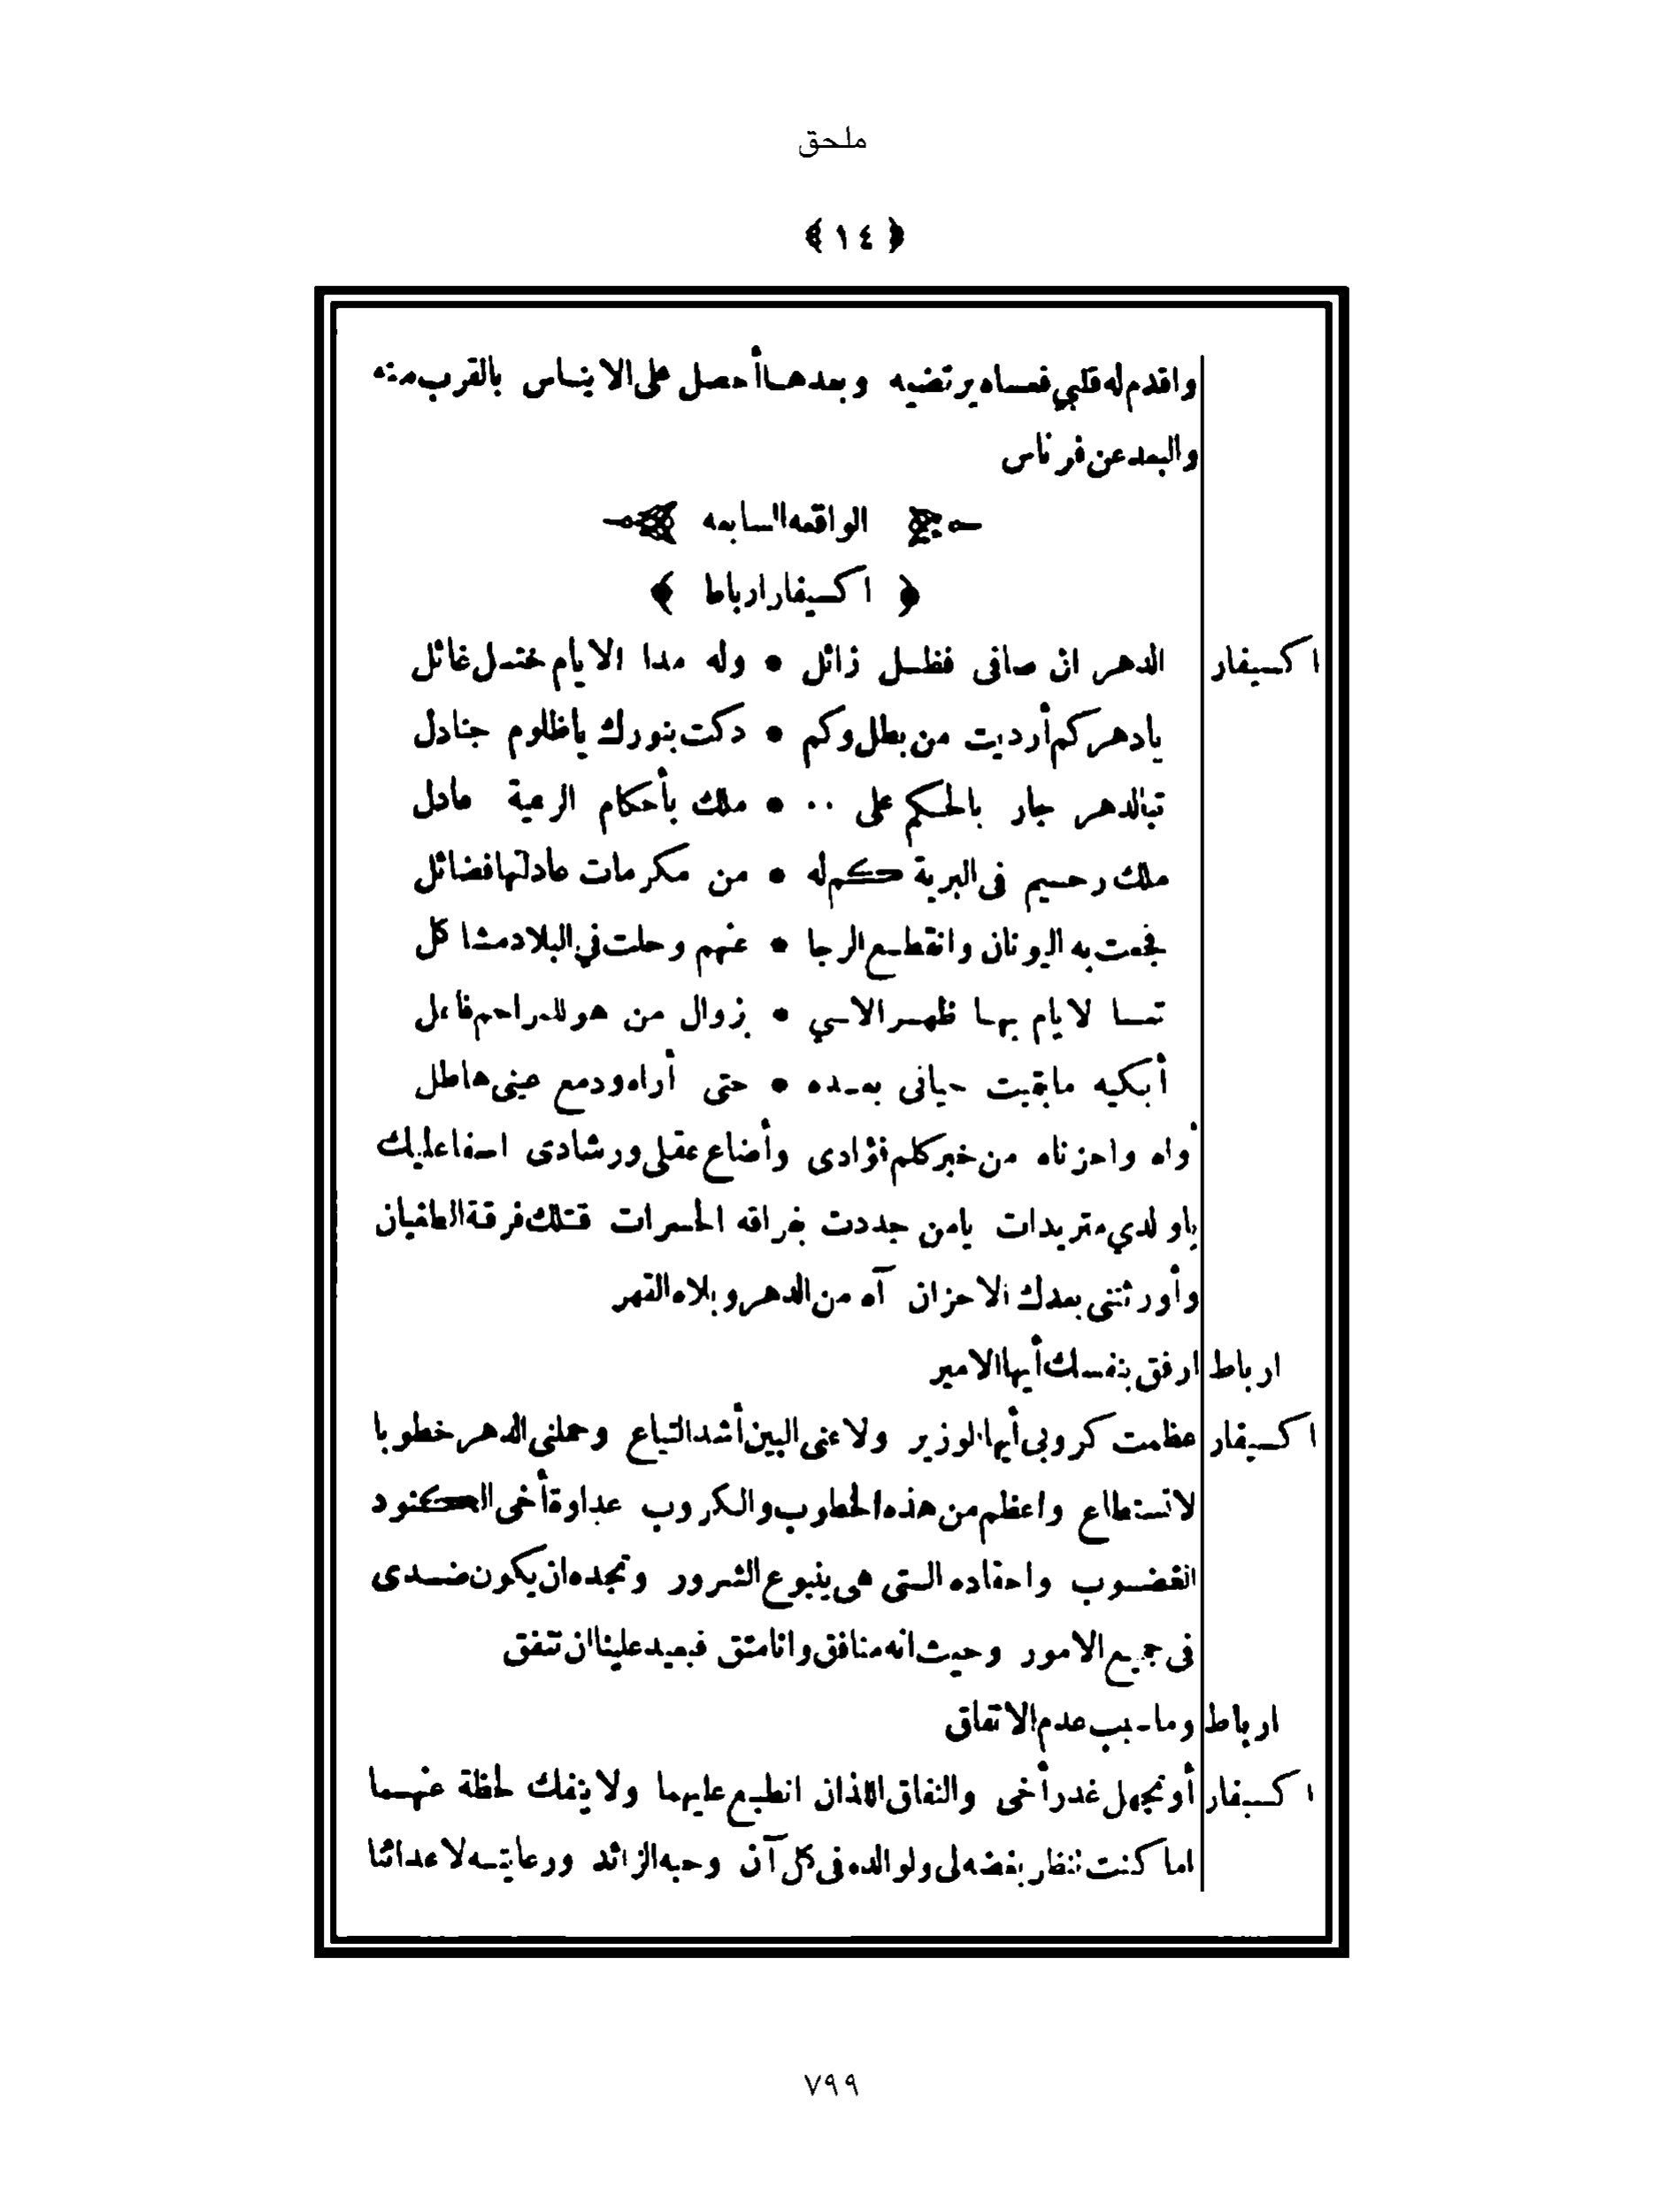 ملحق
﴿١٤﴾
واقدم له قلبي فعساه يرتضيه وبعدها أحصل على الايناس بالقرب منه
والبعد عن فرناس
الواقعه السابعه
﴿ اكسيفار ارباط ﴾
اكسيفار الدهر ان صافى فظل زائل * وله مدا الايام ختل غائل
يادهر كم أرديت من بطل وكم * دكت بنورك ياظلوم جنادل
تبالدهر جار بالحكم على .. * ملك بأحكام الرعية عادل
ملك رحيم فى البرية حكم له * من مكرمات عادلتها فضائل
فجعت به اليونان وانقطع الرجا * عنهم وحلت في البلاد مشاكل
تعسا لايام بها ظهر الاسي * بزوال من هو للمراحم فاعل
أبكيه مابقيت حياتى بعده * حتى أراه ودمع عينى هاطل
أواه واحزناه من خبر كلم فؤادى وأضاع عقلى ورشادى اسفا عليك
ياولدي متريدات يامن جددت بفراقه الحسرات قتلك فرقة الطغيان
وأورثتنى بعدك الاحزان آه من الدهر وبلاه القهر
ارباط ارفق بنفسك أيها الامير
اكسيفار عظمت كروبى أيها الوزير ولاعنى البين أشد التياع وحملنى الدهر خطوبا
لاتستطاع واعظم من هذه الخطوب والكروب عداوة أخى الكنود
الغضوب واحقاده التى هى ينبوع الشرور وتجده ان يكون ضدى
فى جميع الامور وحيث انه منافق وانا متق فبعيد علينا ان نتفق
ارباط وما سبب عدم الاتفاق
اكسيفار أو تجهل غدر أخى والنفاق اللذان انطبع عليهما ولا ينفك لحظة عنهما
اما كنت تنظر بغضه لى ولوالده فى كل آن وحبه الزائد ورعايته لاعدائنا
٧٩٩